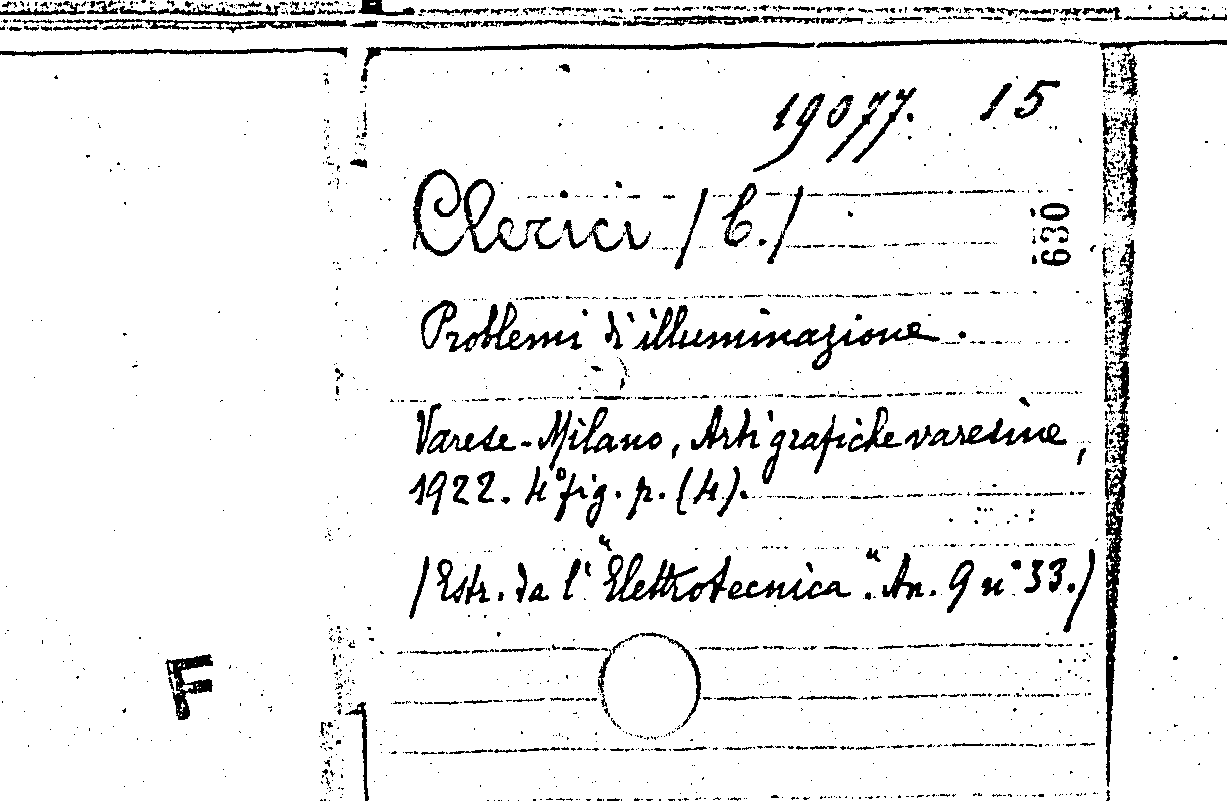 19077. 15
Clerici /C./
630
Problemi d'illuminazione.
Varese-Milano, Arti grafiche varesine,
1922. 4° fig. p. (4).
/Estr. da l'"Elettrotecnica". An. 9 n° 33./
F